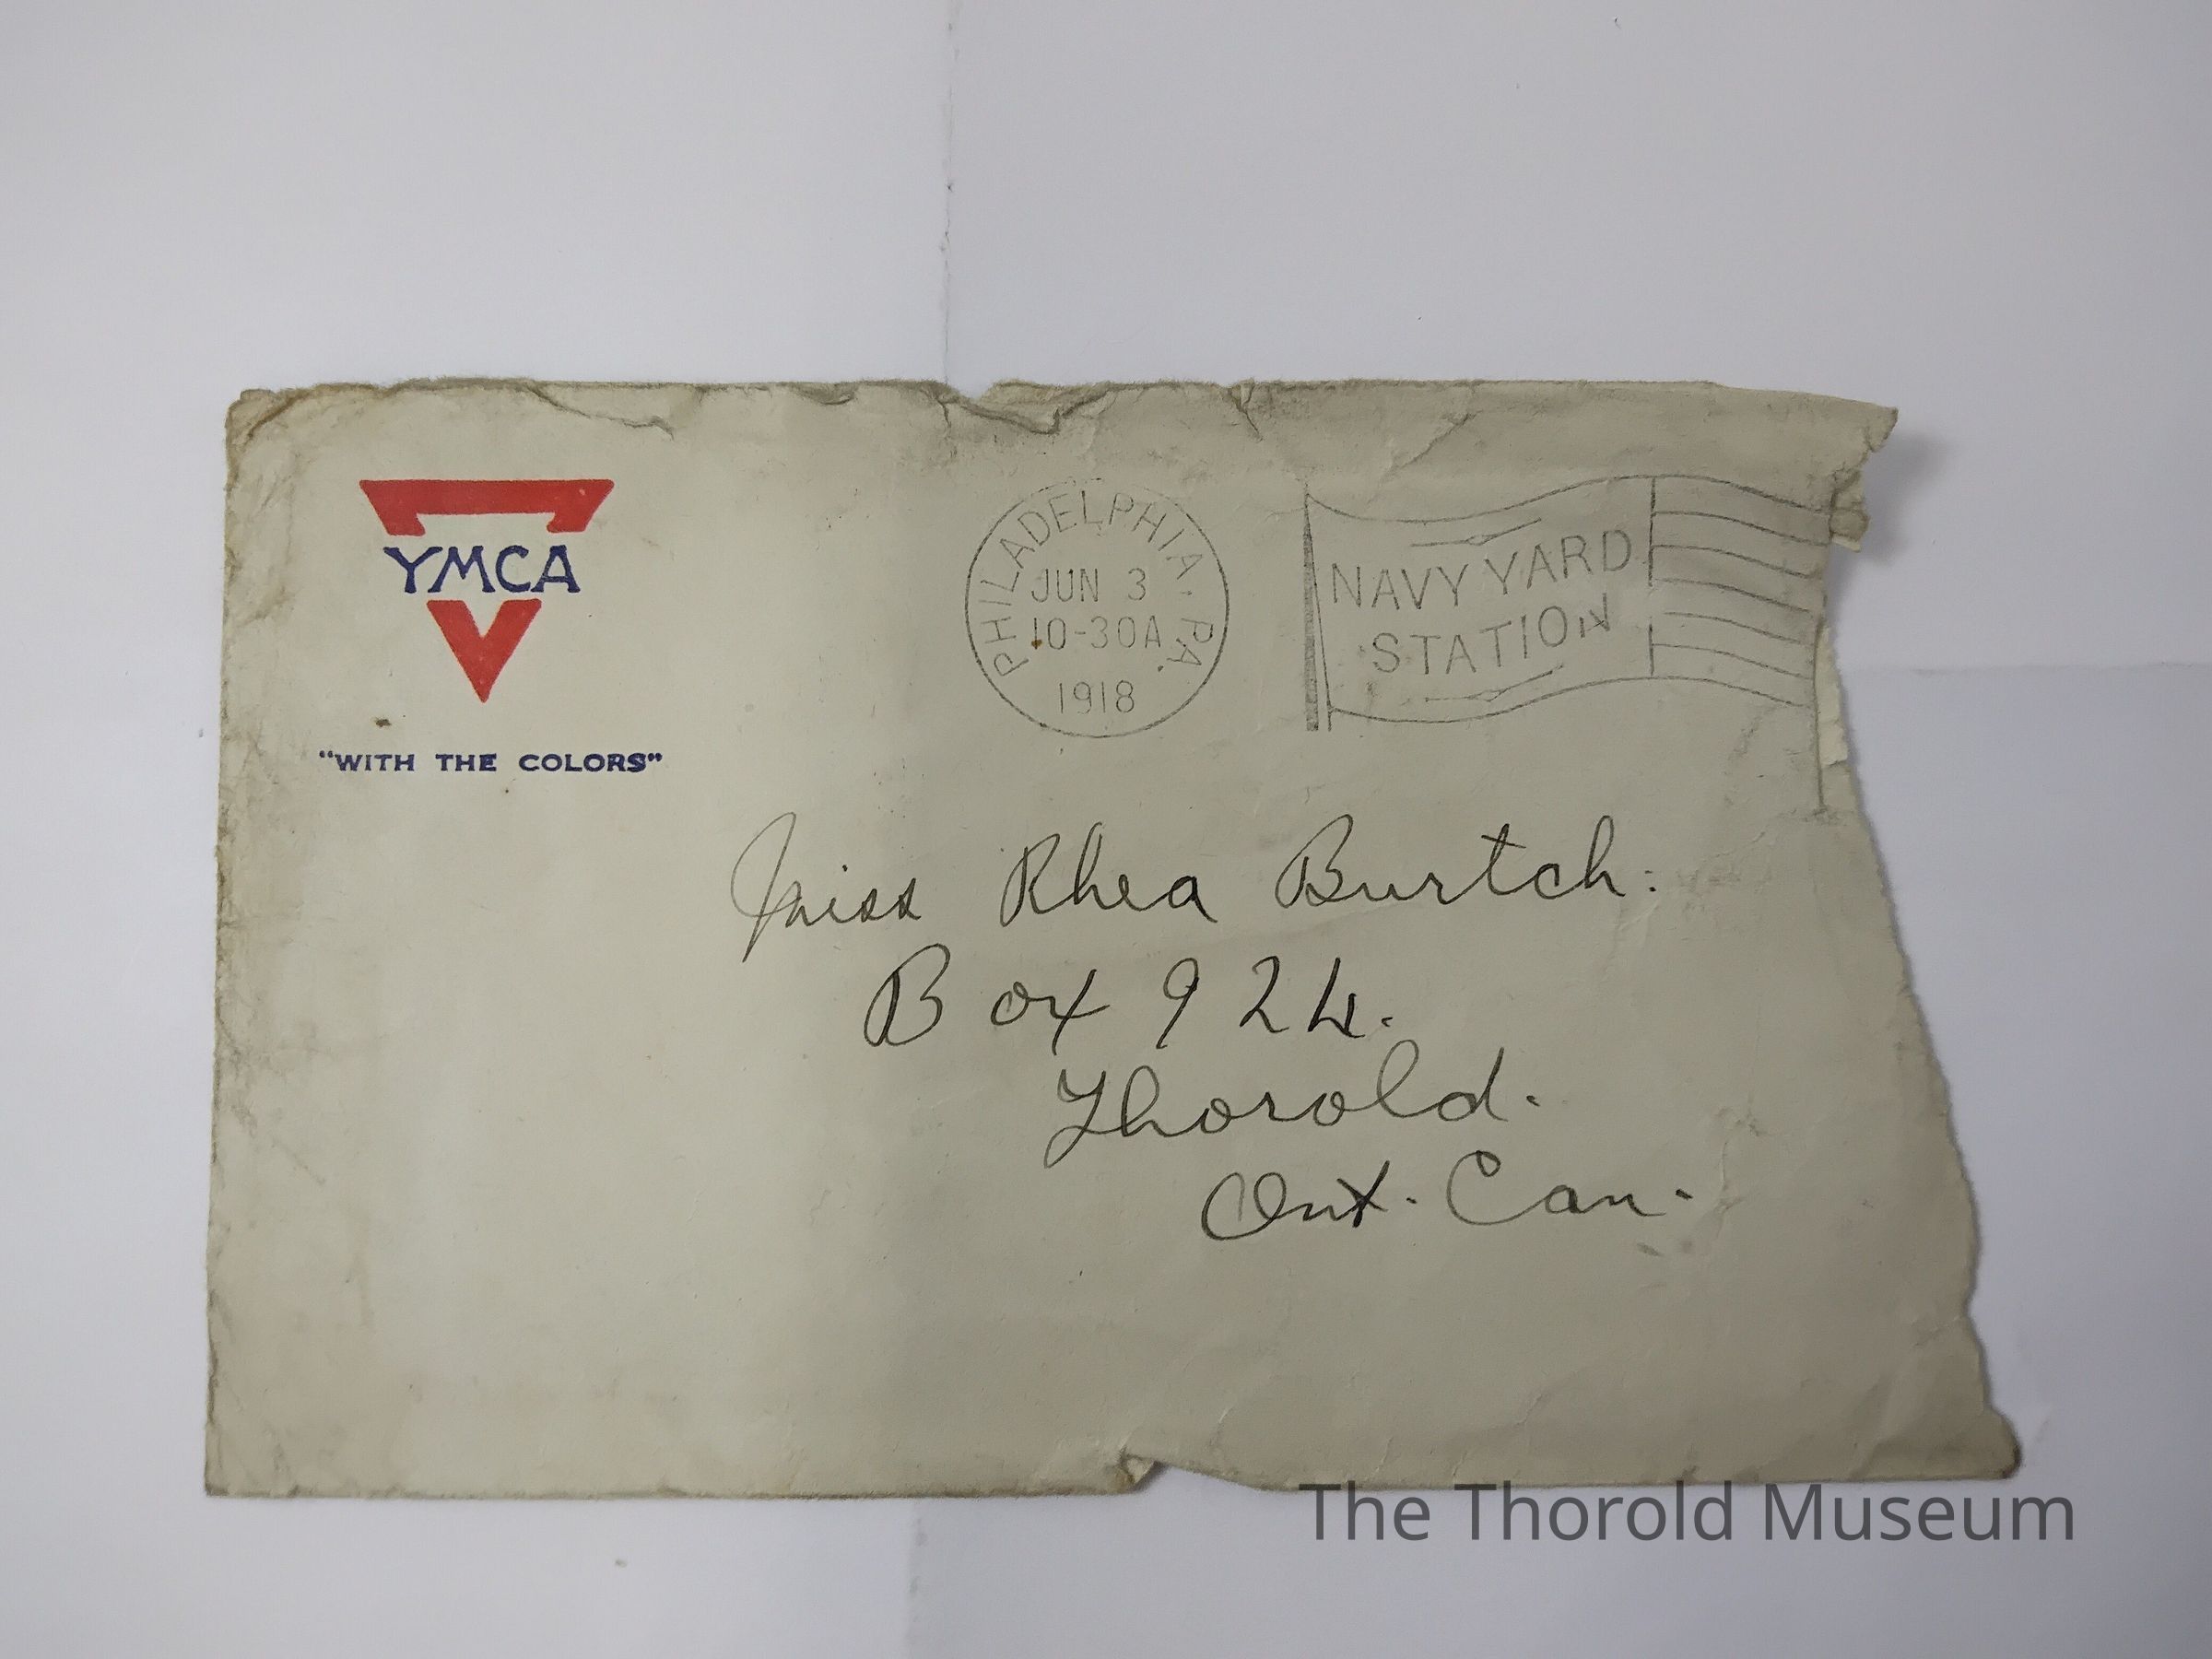 YMCA
"WITH THE COLORS"
PHILADELPHIA. PA.
JUN 3
10-30A
1918
NAVY YARD
STATION
Miss Rhea Burtch:
Box 924.
Thorold.
Ont. Can.
The Thorold Museum